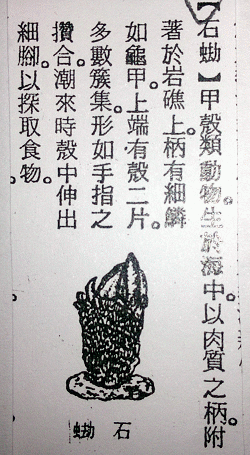 【石蚴】甲殼類動物。生於海中。以肉質之柄。附
著於岩礁上。柄有細鱗
如龜甲。上端有殼二片。
多數簇集。形如手指之
攢合。潮來時殼中伸出
細腳。以探取食物。
石蚴